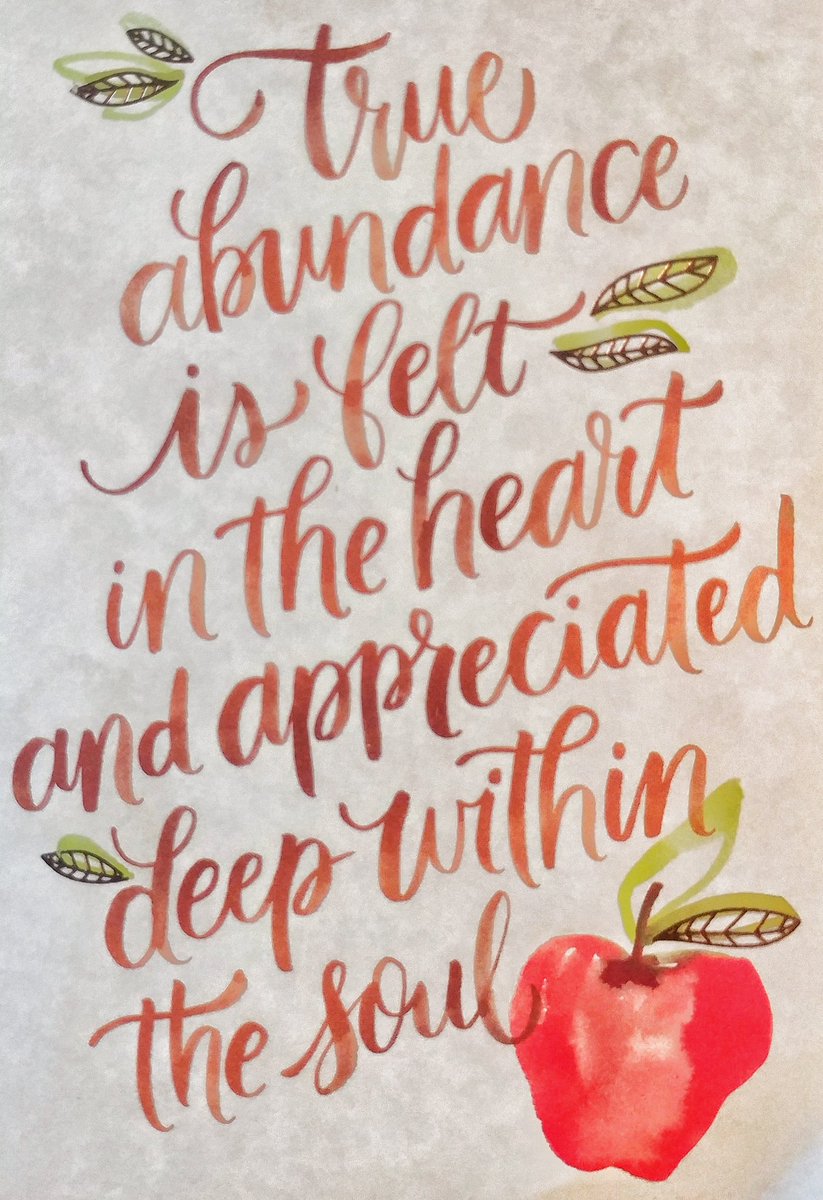 true
abundance
is felt
in the heart
and appreciated
deep within
the soul